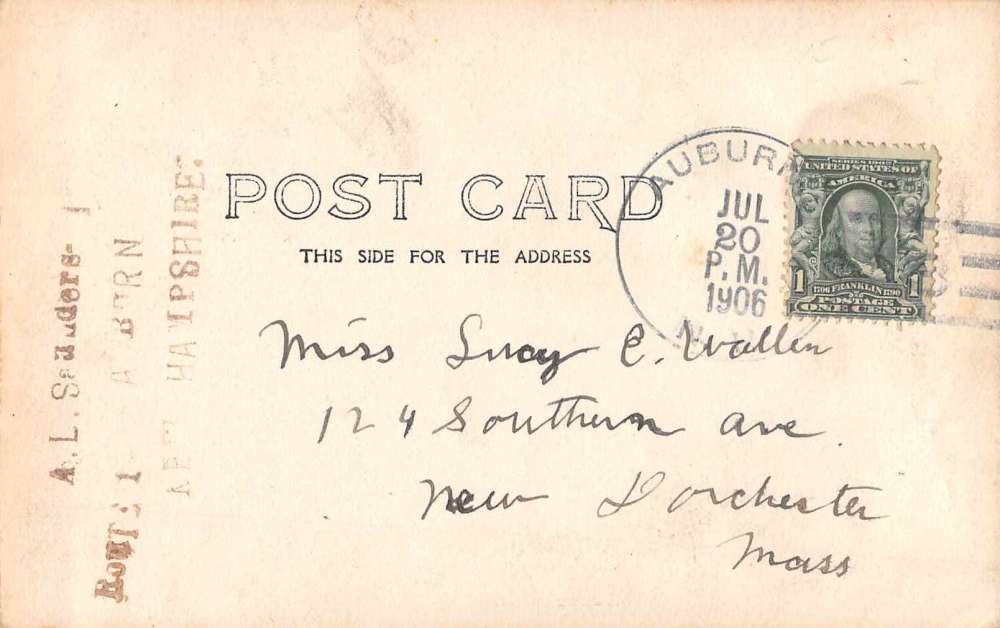 POST CARD
THIS SIDE FOR THE ADDRESS
AUBURN
JUL
20
P.M.
1906
N.H.
SERIES 1902
UNITED STATES OF
AMERICA
1 1706 FRANKLIN 1790 1
POSTAGE
ONE CENT
Miss Lucy E. Wallen
124 Southern ave.
New Dorchester
Mass
A.L. Saunders
ROUTE 1 AUBURN
NEW HAMPSHIRE.